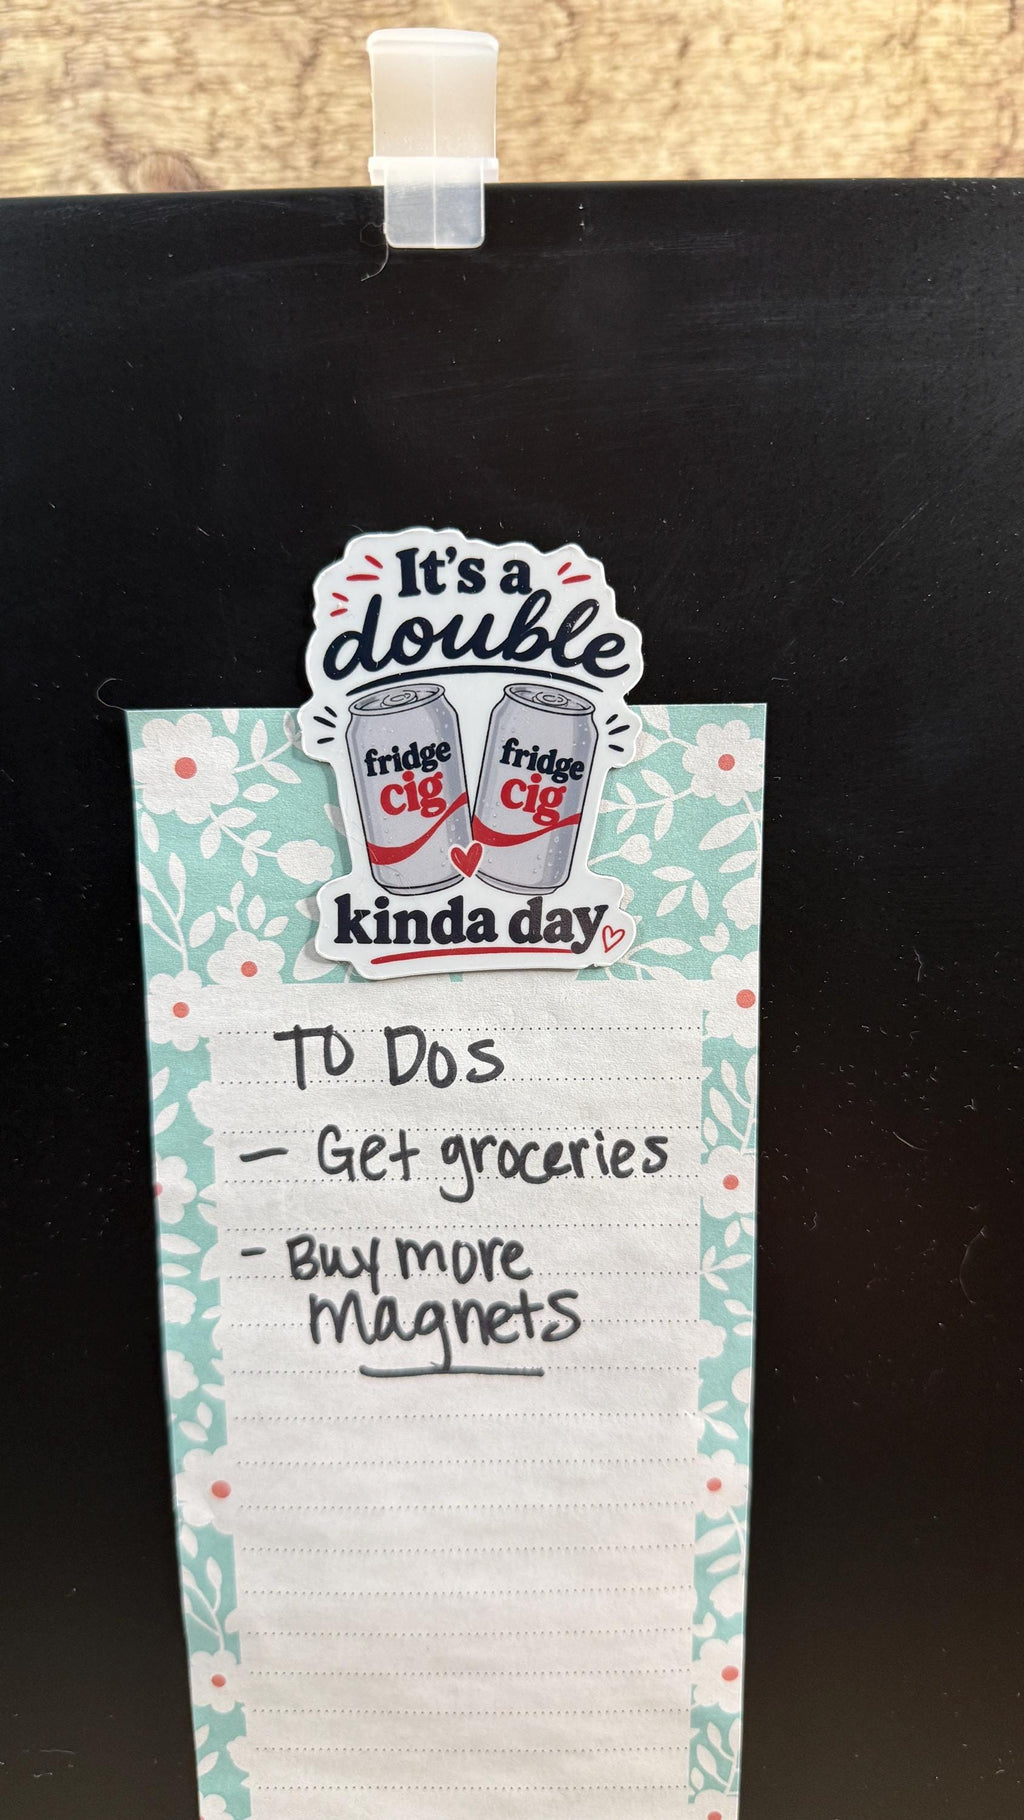 It's a
double
fridge
cig
fridge
cig
kinda day
To Dos
- Get groceries
- Buy more
magnets